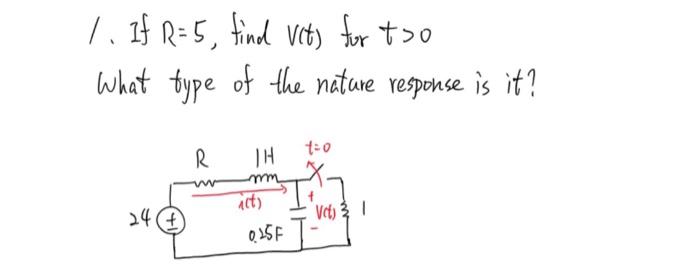 1. If R=5, find V(t) for t>0
What type of the nature response is it?
t=0
R 1H
i(t) +
24 + V(t) 1
0.25F -